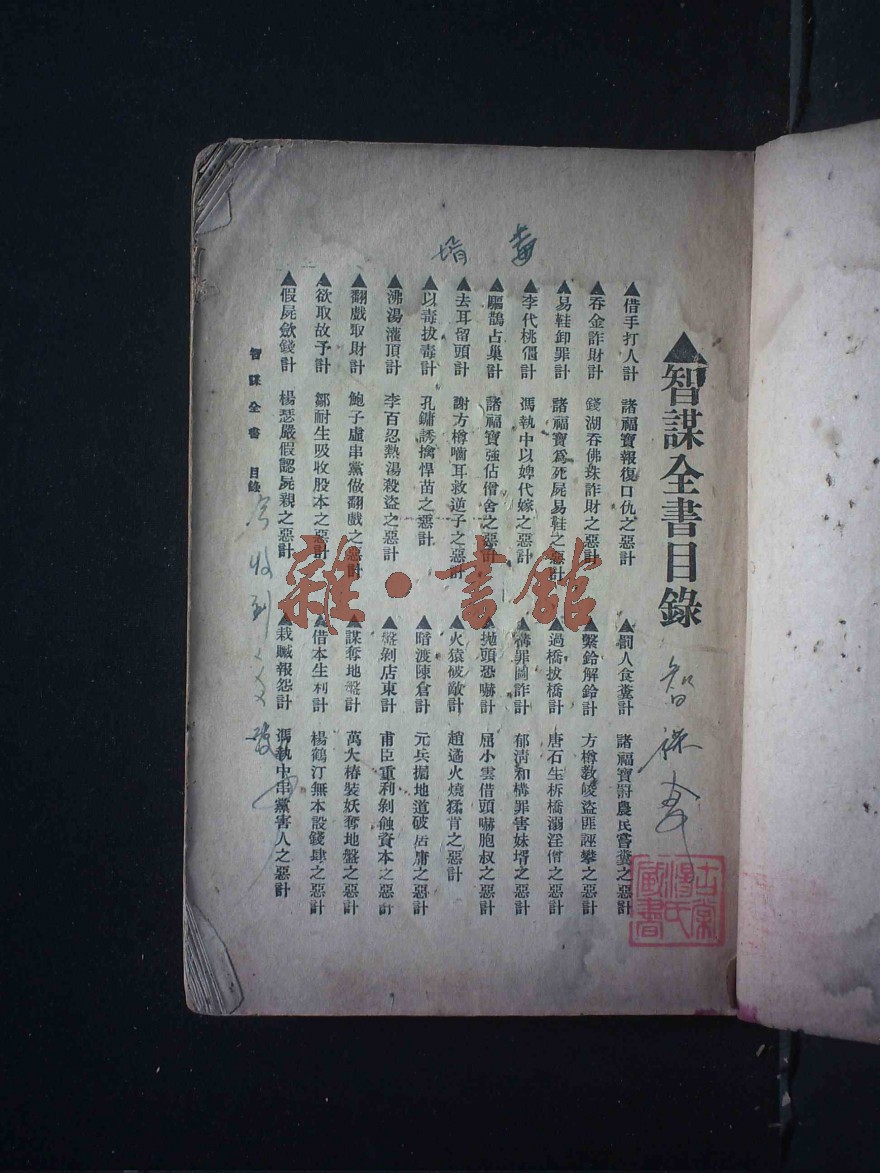 ▲智謀全書目錄
▲借手打人計　諸福寶報復口仇之惡計
▲罰人食糞計　諸福寶罸農民嘗糞之惡計
▲吞金詐財計　錢湖吞佛珠詐財之惡計
▲繫鈴解鈴計　方樽教唆盜匪誣攀之惡計
▲易鞋卸罪計　諸福寶爲死屍易鞋之惡計
▲過橋拔橋計　唐石生柝橋溺淫僧之惡計
▲李代桃僵計　馮執中以婢代嫁之惡計
▲構罪圖詐計　郁淸和構罪害妹壻之惡計
▲驅鵲占巢計　諸福寶強佔僧舍之惡計
▲拋頭恐嚇計　屈小雲借頭嚇胞叔之惡計
▲去耳留頭計　謝方樽嚙耳救逆子之惡計
▲火猿破敵計　趙遹火燒猱肯之惡計
▲以毒拔毒計　孔鏞誘擒悍苗之惡計
▲暗渡陳倉計　元兵掘地道破居庸之惡計
▲沸湯灌頂計　李百忍熱湯殺盜之惡計
▲盤剝店東計　甫臣重利剝蝕資本之惡計
▲翻戲取財計　鮑子虛串黨做翻戲之惡計
▲謀奪地盤計　萬大椿裝妖奪地盤之惡計
▲欲取故予計　鄒耐生吸收股本之惡計
▲借本生利計　楊鶴汀無本設錢肆之惡計
▲假屍斂錢計　楊瑟嚴假認屍親之惡計
▲栽贓報怨計　馮執中串黨害人之惡計
智謀全書　目錄
雜·書館